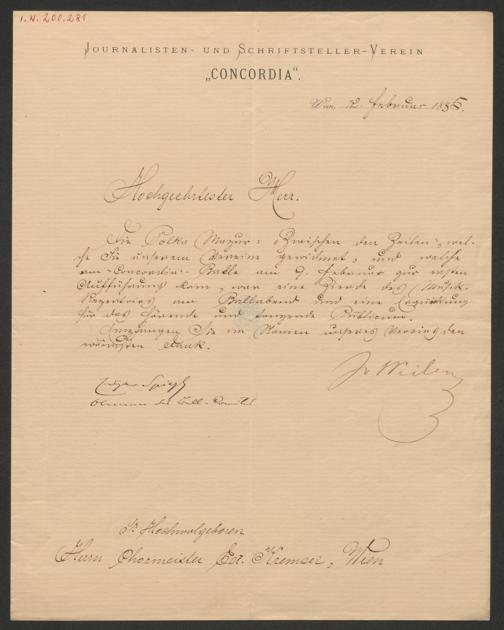 I.N. 200.281
JOURNALISTEN- UND SCHRIFTSTELLER-VEREIN
„CONCORDIA“.
Wien, 12. Februar 1885.
Hochgeehrtester Herr.
Die Polka Mazur: „Zwischen den Zeilen“, wel-
che Sie unserem Vereine gewidmet, und welche
am „Concordia“-Balle am 9. Februar zur ersten
Aufführung kam, war eine Zierde des Musik-
Repertoires am Ballabend und eine Erquickung
für das hörende und tanzende Publicum.
Empfangen Sie im Namen unseres Vereins den
wärmsten Dank.
Edgar Spiegl
Obmann des Ball-Comités
Jos Weilen
Sr. Hochwolgeboren
Herrn Chormeister Ed. Kremser, Wien